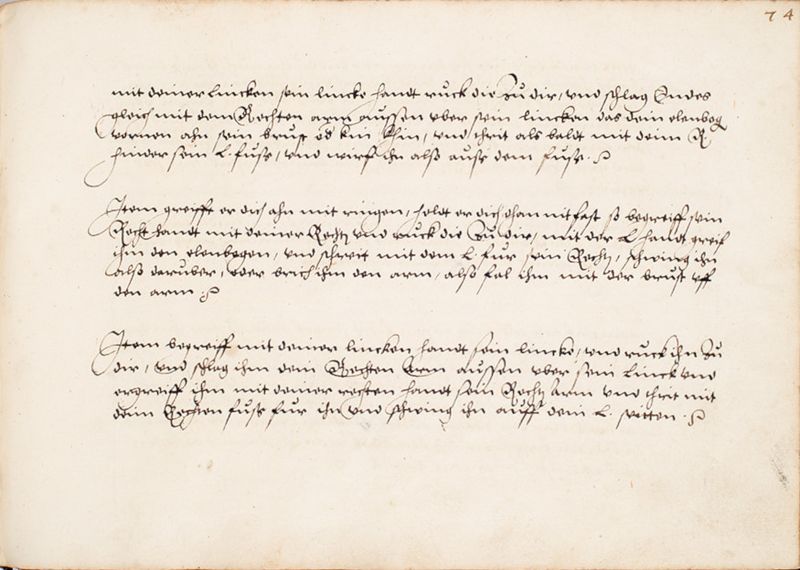 74
mit deiner lincken sein lincke handt ruck die zu dir, vnd schlag Indes
gleich mit dem Rechten arm aussen vber sein lincken das dein elenbog
vornen ahn sein brust od kin khin, vnd thrit als baldt mit deim R
hinder sein L fuss, vnd wirf ihn alss auss dem fuss.
Item greifft er dich ahn mit ringen, holdt er dich dan nit fast so begreiff sein
Recht handt mit deiner Rechtn vnd ruck die zu dir, mit der L handt greif
ihm den elenbogen, vnd schreit mit dem L fur sein Rechtn, schwing ihn
alss daruber, oder brich ihm den arm, alss fal ihm mit der brust vff
den arm.
Item begreiff mit deiner lincken handt sein lincke, vnd ruck ihn zu
dir, vnd schlag ihm dein Rechten Arm aussen vber sein Linck vnd
ergreiff ihm mit deiner rechten handt sein Rechtn Arm vnd thrit mit
deim Rechten fuss fur ihn vnd schwing ihn auff dein L. seitten.